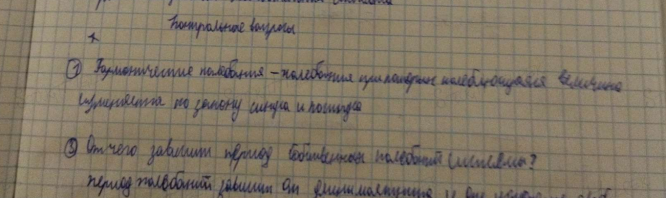 Контрольные вопросы
① Гармонические колебания – колебания при которых колеблющаяся величина
изменяется по закону синуса и косинуса
② От чего зависит период собственных колебаний системы?
период колебаний зависит от